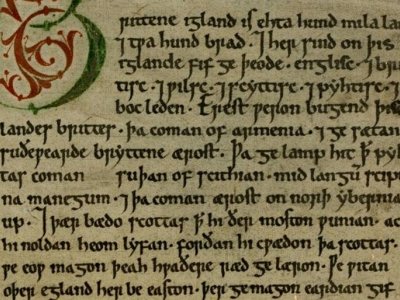 Brittene igland is ehta hund mila lan
⁊ tƿa hund brad. ⁊ her sind on þis
iglande fif geþeode. englisc. ⁊ bri
tisc. ⁊ ƿilsc. ⁊ scyttisc. ⁊ pyhtisc. ⁊
boc leden. Erest ƿeron bugend þis
landes brittes. þa coman of armenia. ⁊ ge sætan
suðeƿearde bryttene ærost. Þa ge lamp hit ꝥ pyh
tas coman suþan of scithian. mid langū scipu
na manegum. ⁊ þa coman ærost on norþ ybernia
up. ⁊ þær bædo scottas ꝥ hi ðer moston ƿunian. ac
hi noldan heom lyfan. forðan hi cƿædon þa scottas.
ƿe eoƿ magon þeah hƿaðere ræd ge læron. Ƿe ƿitan
oþer egland her be easton. þer ge magon eardian gif